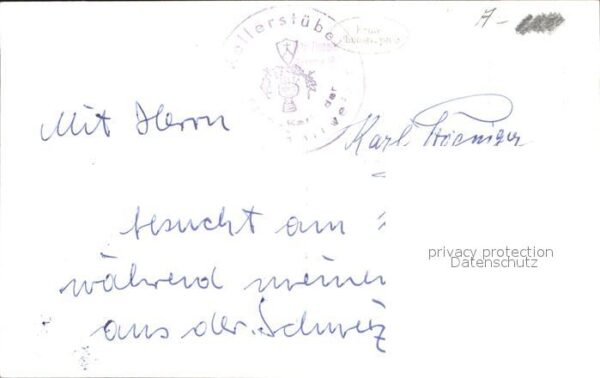 Kellerstübe
A-
Mit Herrn Karl
besucht am
während meiner
aus der Schweiz
privacy protection
Datenschutz